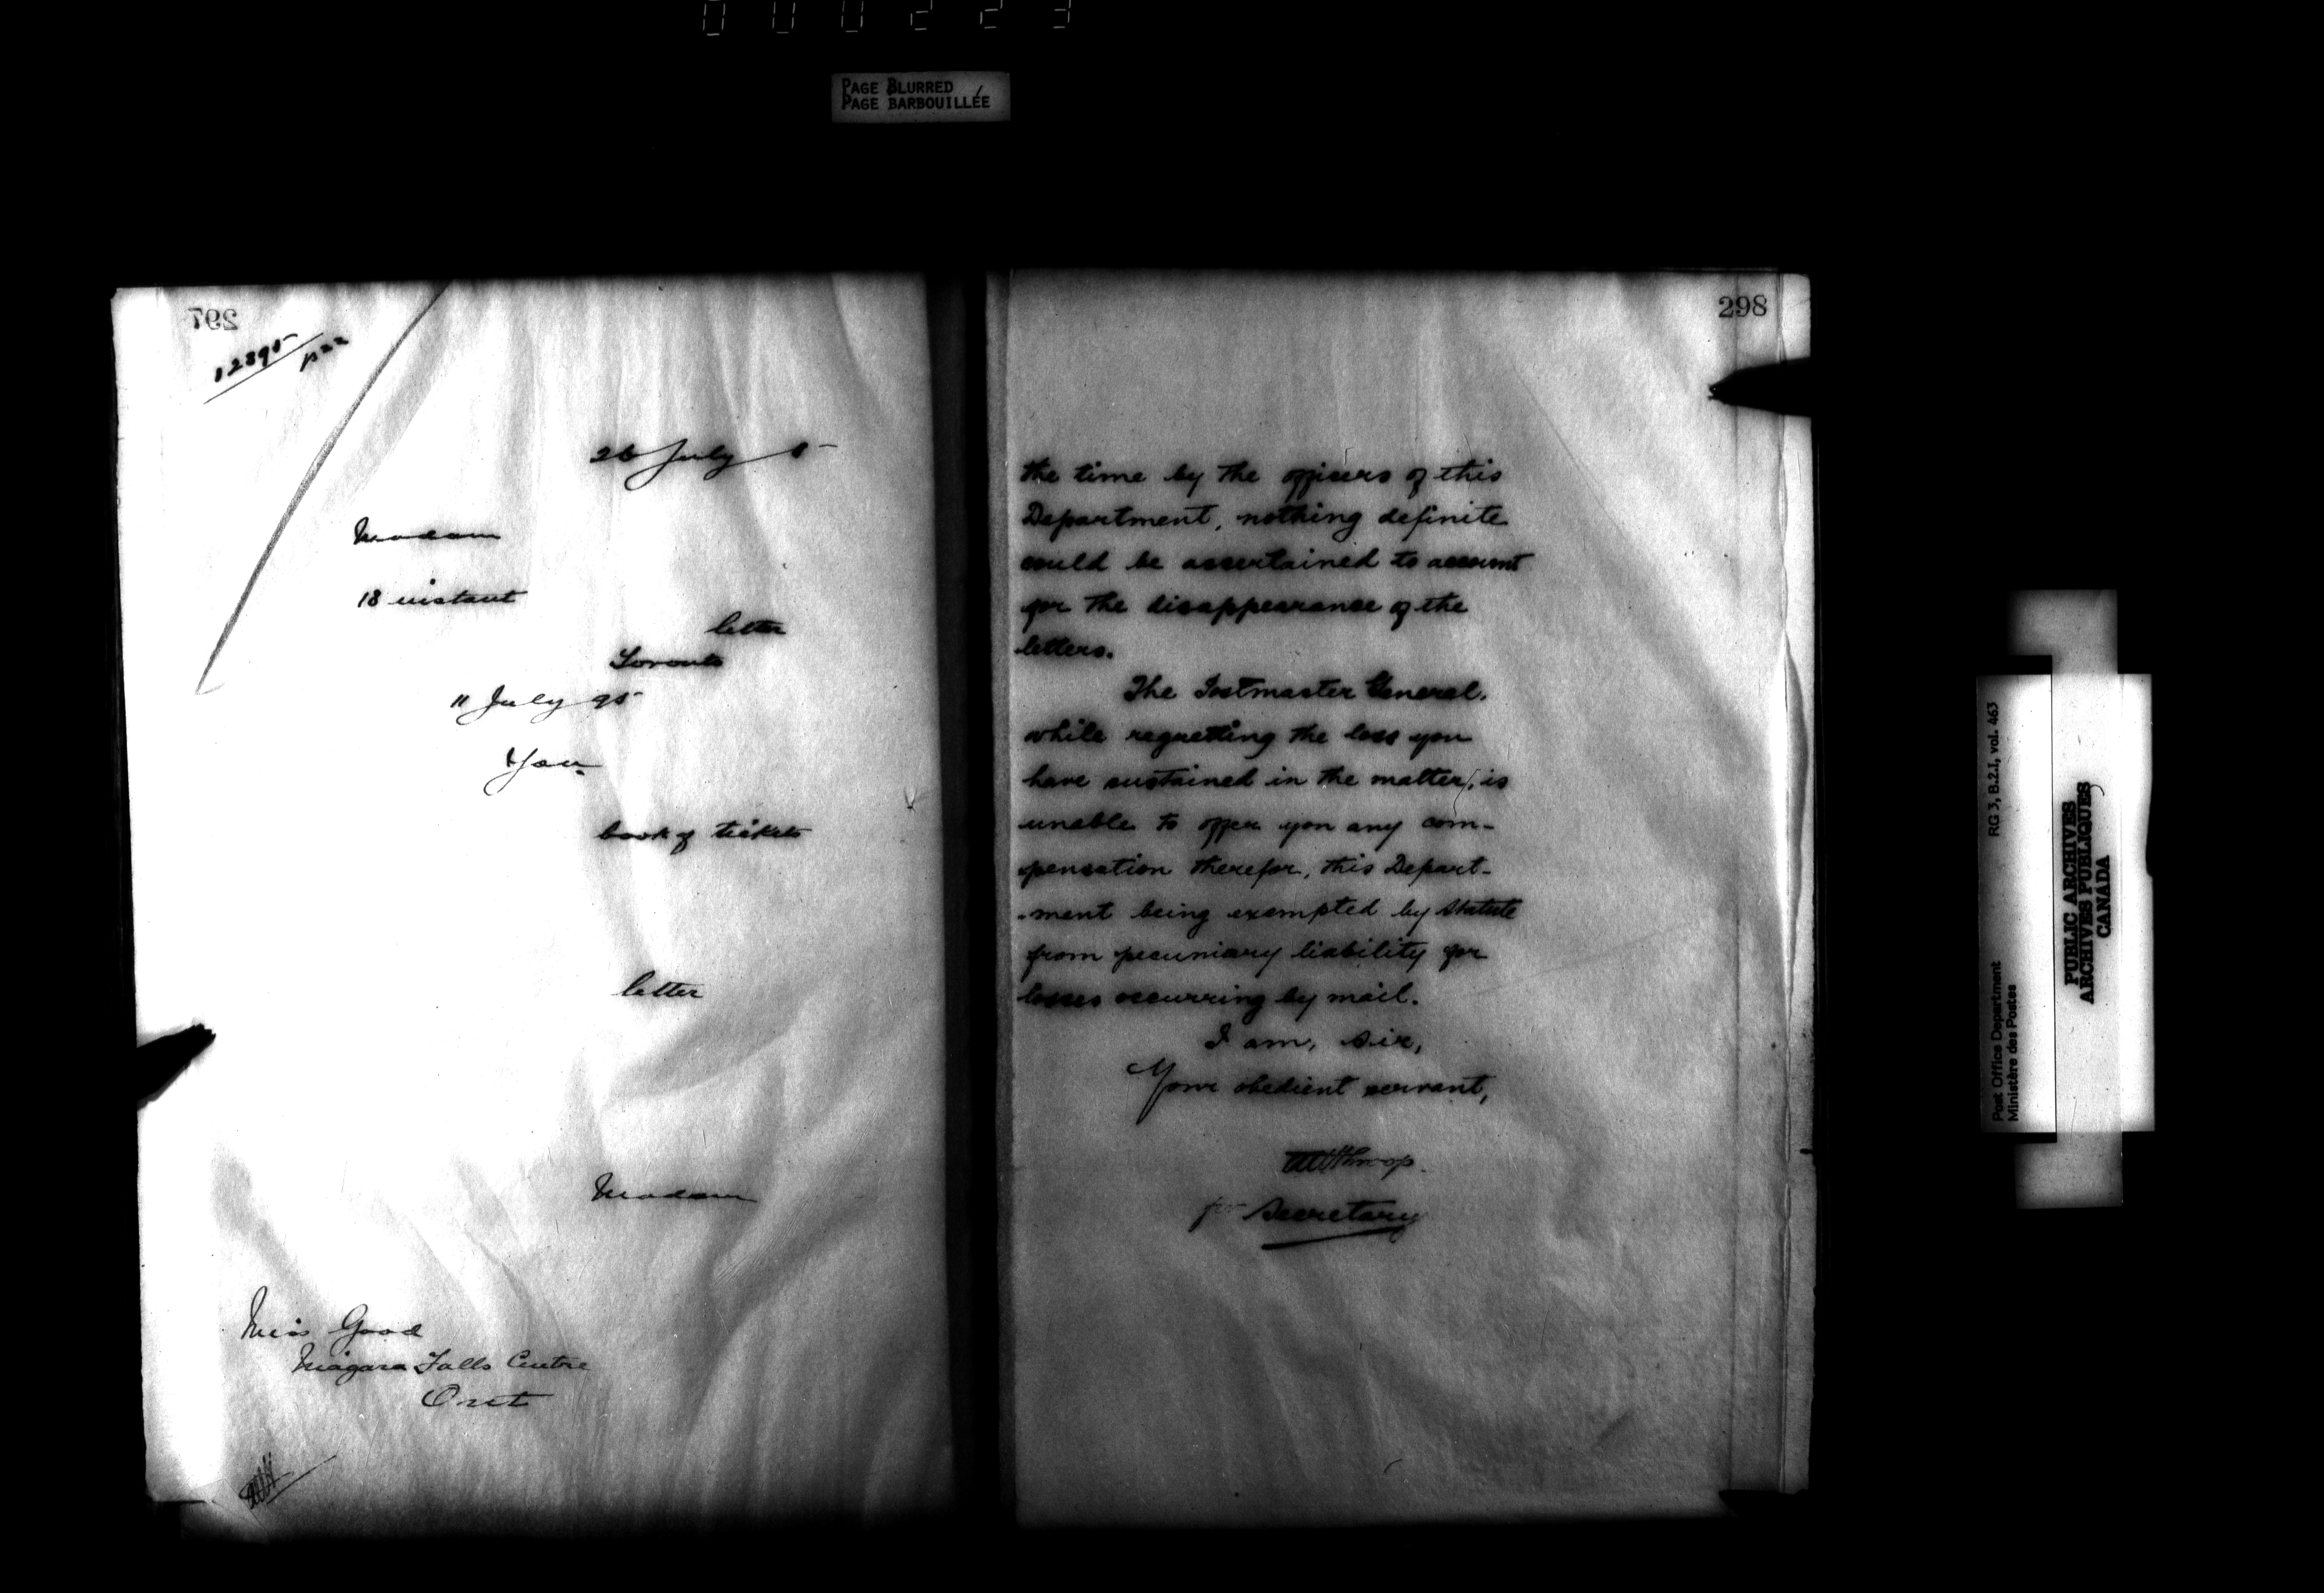 000223
PAGE BLURRED
PAGE BARBOUILLÉE
297
12395
26 July 5
Madam
18 instant
letter
Toronto
11 July 95
You
book of tickets
letter
Madam
Miss Good
Niagara Falls Centre
Ont
298
the time by the officers of this
Department, nothing definite
could be ascertained to account
for the disappearance of the
letters.
The Postmaster General,
while regretting the loss you
have sustained in the matter, is
unable to offer you any com-
pensation therefor, this Depart-
-ment being exempted by Statute
from pecuniary liability for
losses occurring by mail.
I am, Sir,
Your obedient servant,
for Secretary
Post Office Department
Ministère des Postes
RG 3, B.2.1, vol. 463
PUBLIC ARCHIVES
ARCHIVES PUBLIQUES
CANADA